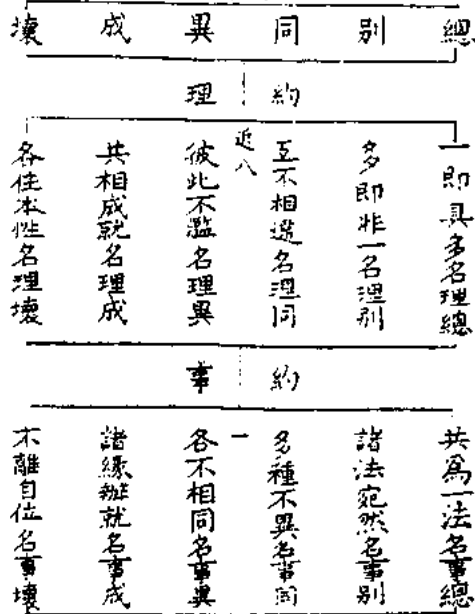 總 別 同 異 成 壞
約 理
一即具多名理總
多即非一名理別
互不相違名理同
近八
彼此不濫名理異
共相成就名理成
各住本性名理壞
約 事
共為一法名事總
諸法宛然名事別
多種不異名事同
一
各不相同名事異
諸緣辦就名事成
不離自位名事壞